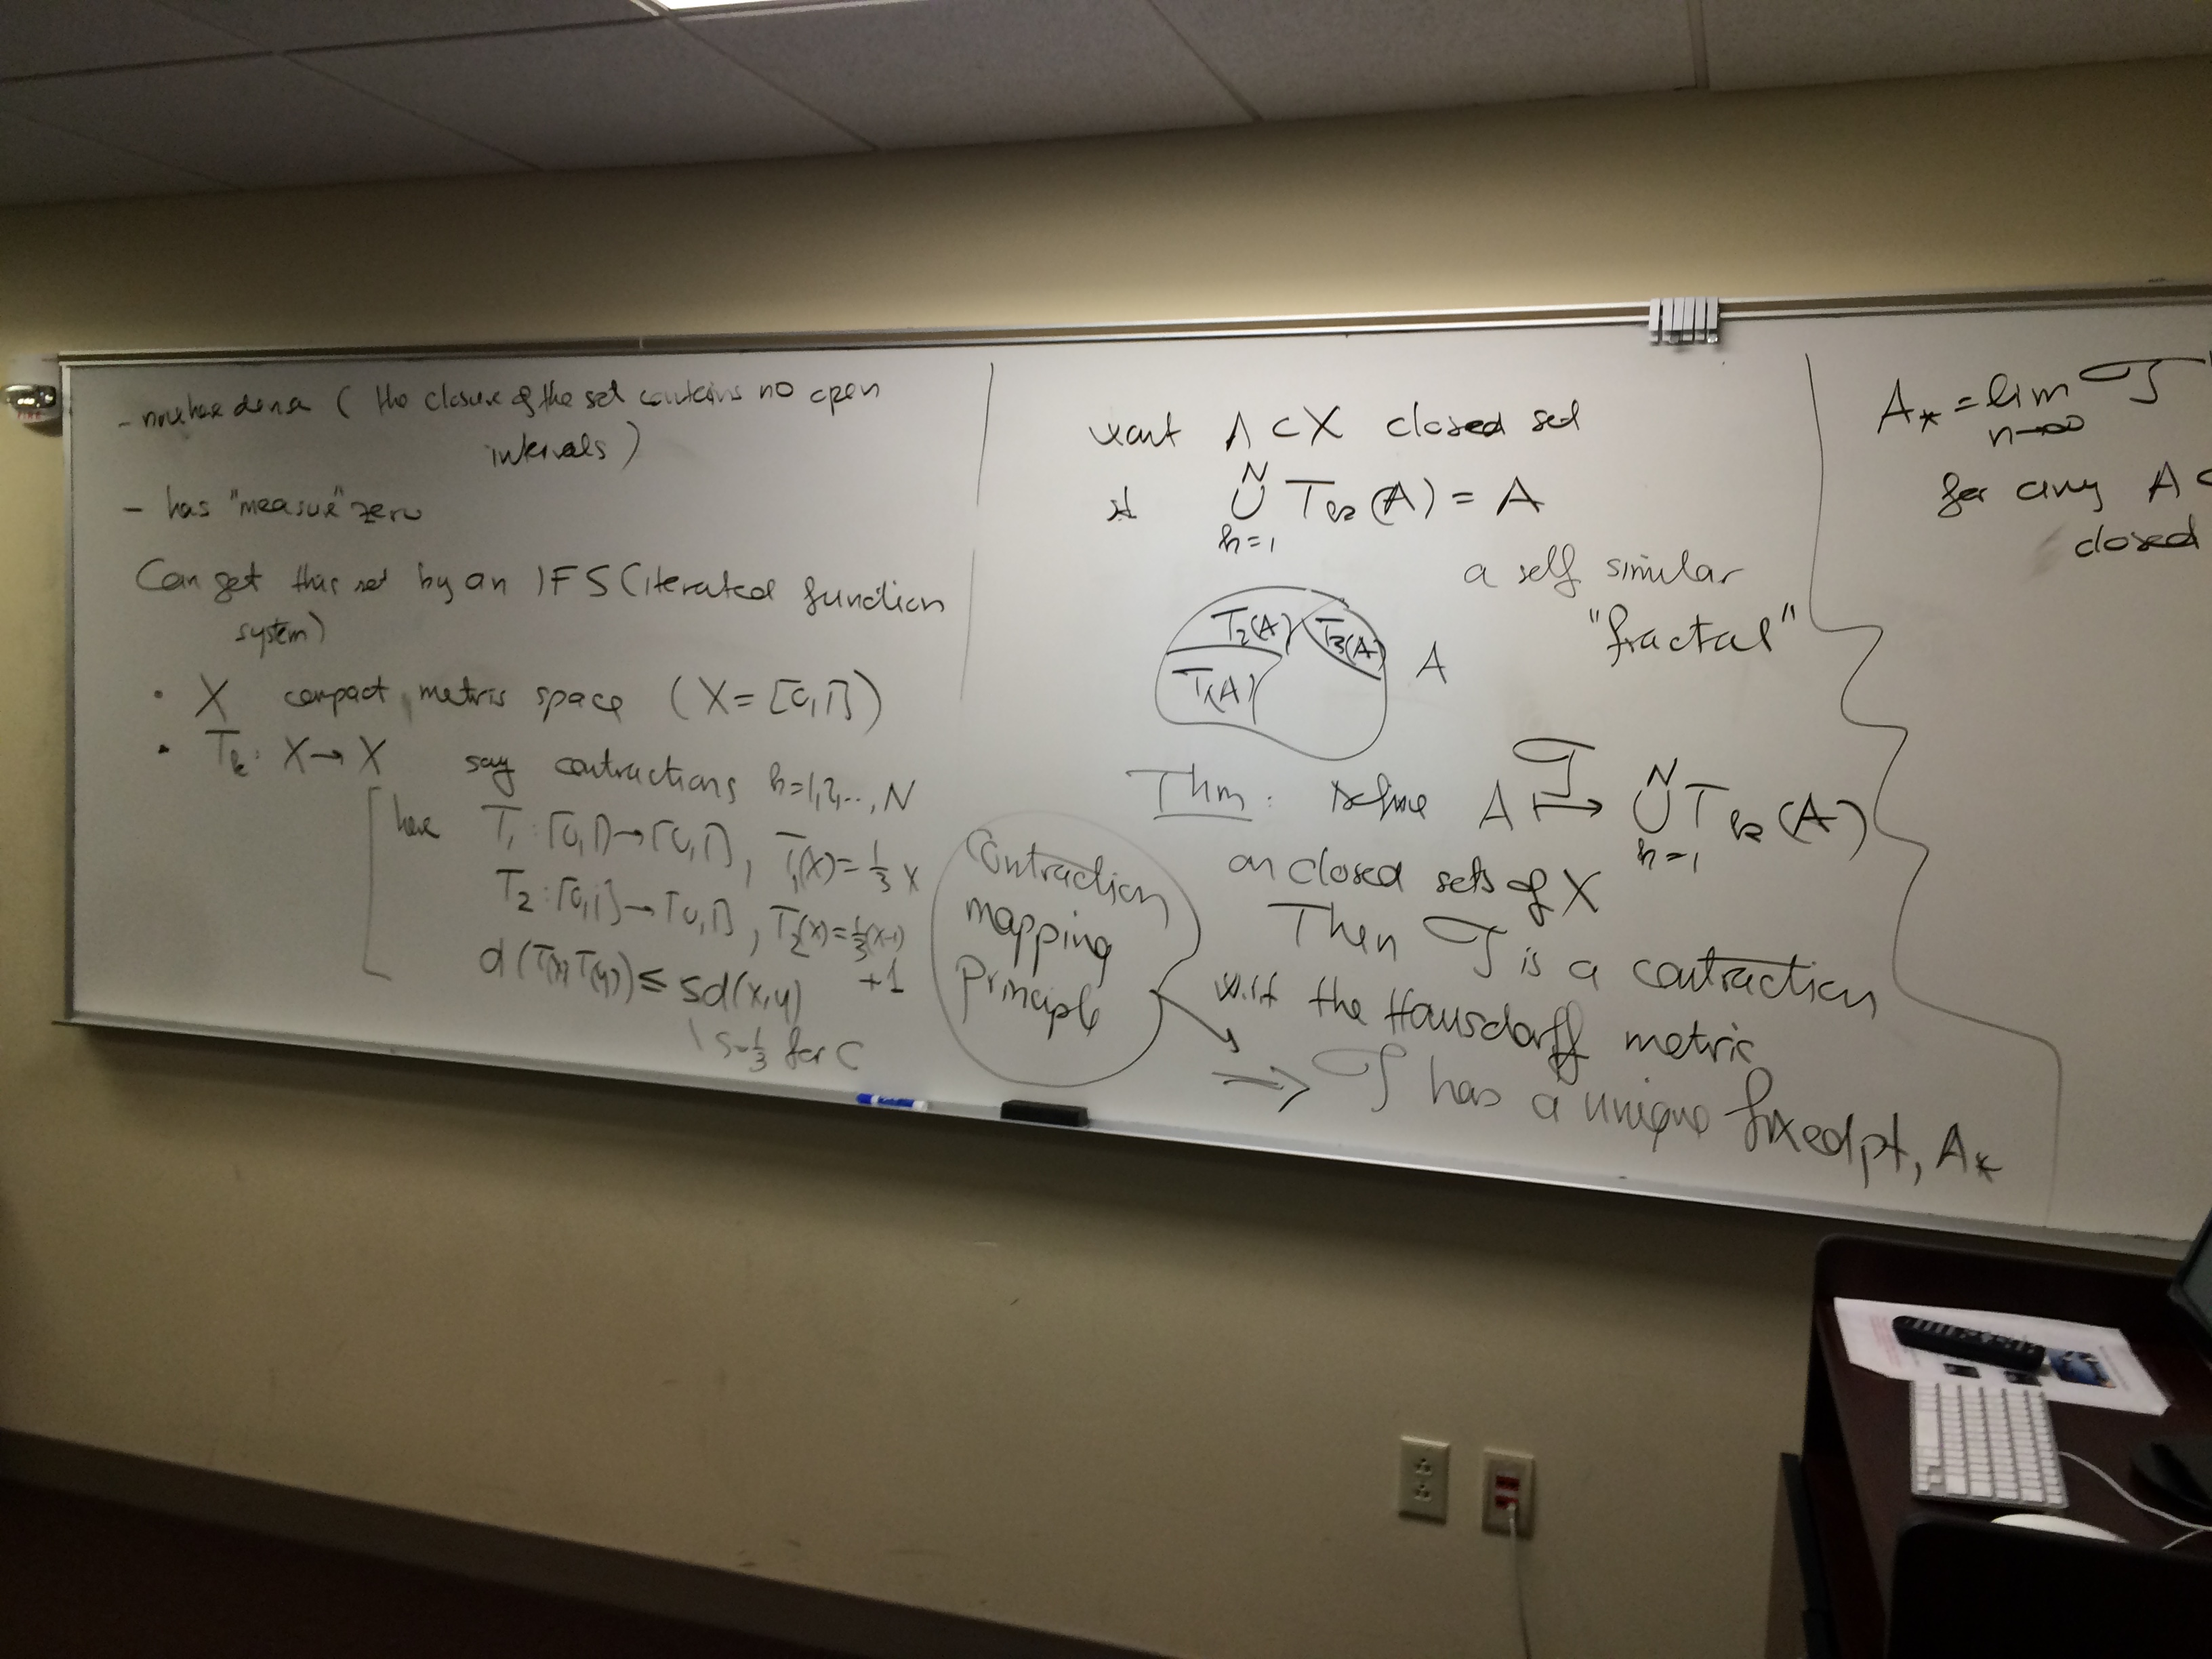 - nowhere dense ( the closure of the set contains no open
intervals )
- has "measure" zero
Can get this set by an IFS (iterated function
system)
• X compact metric space ( X = [0,1] )
• T_k : X → X say contractions k=1,2,..., N
here T_1 : [0,1] → [0,1] , T_1(x) = 1/3 x
T_2 : [0,1] → [0,1] , T_2(x) = 1/3(x-1)
+1
d (T(x), T(y)) ≤ s d(x,y)
s=1/3 for C
Contraction
mapping
principle
want A ⊂ X closed set
st ⋃_{k=1}^{N} T_k (A) = A
a self similar
"fractal"
T_2(A) T_3(A)
T_1(A)
A
Thm : Define A ↦^𝒯 ⋃_{k=1}^{N} T_k (A)
on closed sets of X
Then 𝒯 is a contraction
w.r.t the Hausdorff metric
⇒ 𝒯 has a unique fixed pt, A_*
A_* = lim_{n→∞} 𝒯
for any A ⊂
closed